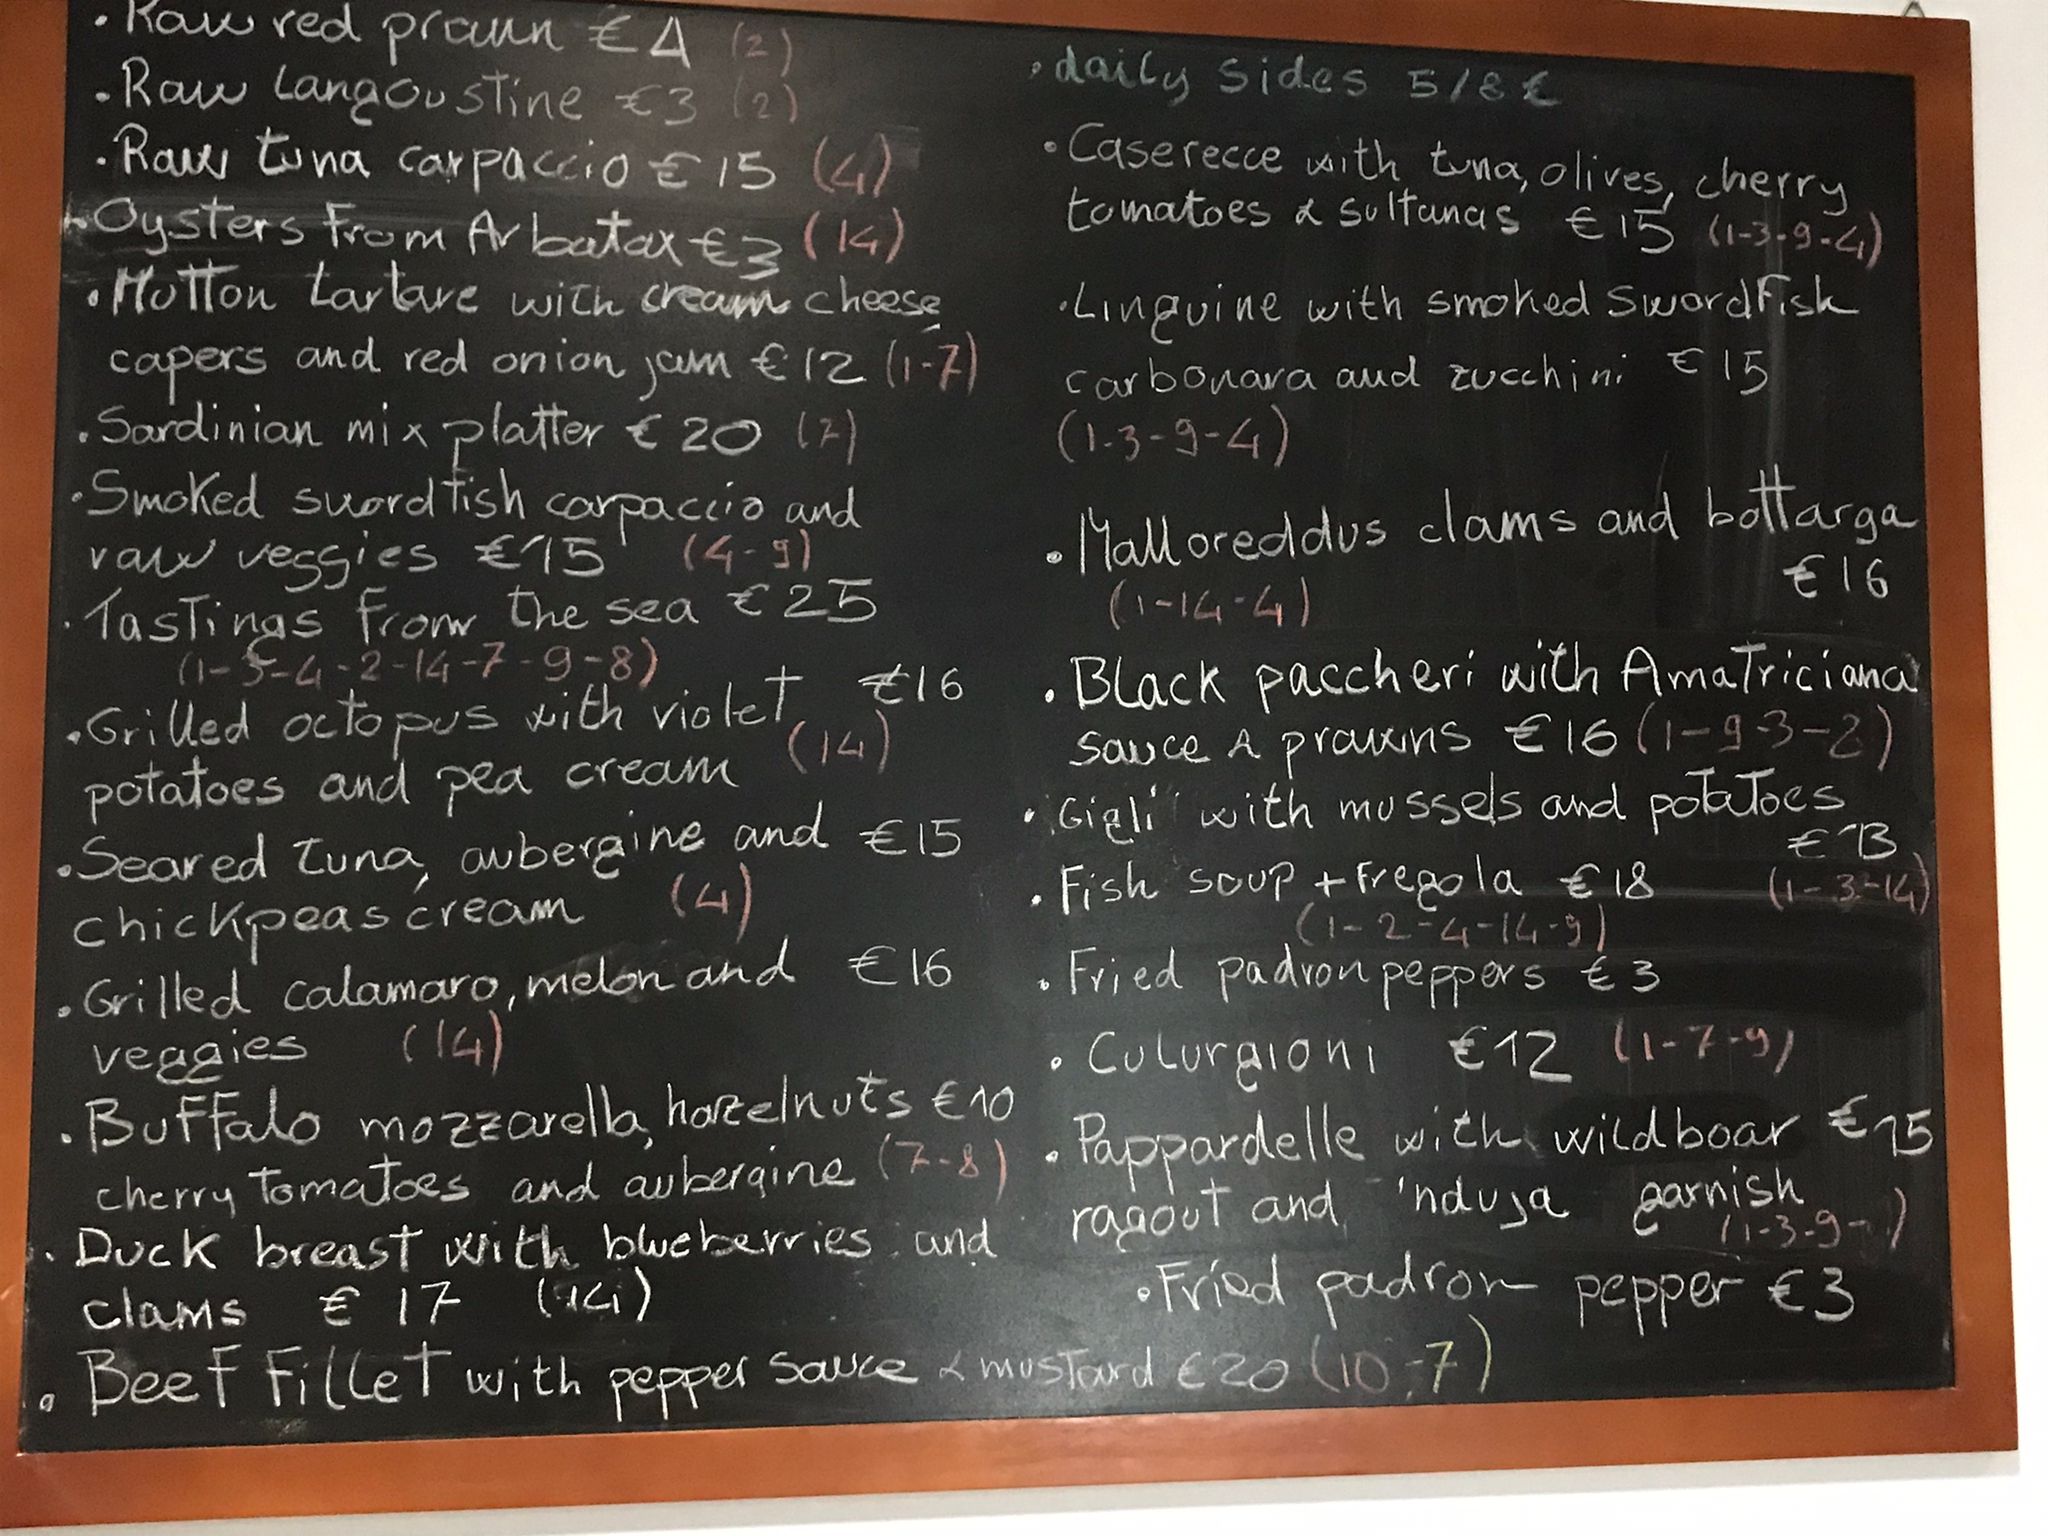 • Raw red prawn €4 (2)
• Raw Langoustine €3 (2)
• Raw tuna carpaccio €15 (4)
• Oysters from Arbatax €3 (14)
• Mutton tartare with cream cheese,
capers and red onion jam €12 (1-7)
• Sardinian mix platter €20 (7)
• Smoked swordfish carpaccio and
raw veggies €15 (4-9)
• Tastings from the sea €25
(1-3-4-2-14-7-9-8)
• Grilled octopus with violet €16
potatoes and pea cream (14)
• Seared tuna, aubergine and €15
chickpeas cream (4)
• Grilled calamaro, melon and €16
veggies (14)
• Buffalo mozzarella, hazelnuts €10
cherry tomatoes and aubergine (7-8)
• Duck breast with blueberries and
clams €17 (14)
• Beef Fillet with pepper sauce & mustard €20 (10-7)
• daily sides 5/8 €
• Caserecce with tuna, olives, cherry
tomatoes & sultanas €15 (1-3-9-4)
• Linguine with smoked swordfish
carbonara and zucchini €15
(1-3-9-4)
• Malloreddus clams and bottarga
€16
(1-14-4)
• Black paccheri with Amatriciana
sauce & prawns €16 (1-9-3-2)
• "Gigli" with mussels and potatoes
€13
(1-3-14)
• Fish soup + fregola €18
(1-2-4-14-9)
• Fried padron peppers €3
• Culurgioni €12 (1-7-9)
• Pappardelle with wildboar €15
ragout and 'nduja garnish
(1-3-9- )
• Fried padron pepper €3